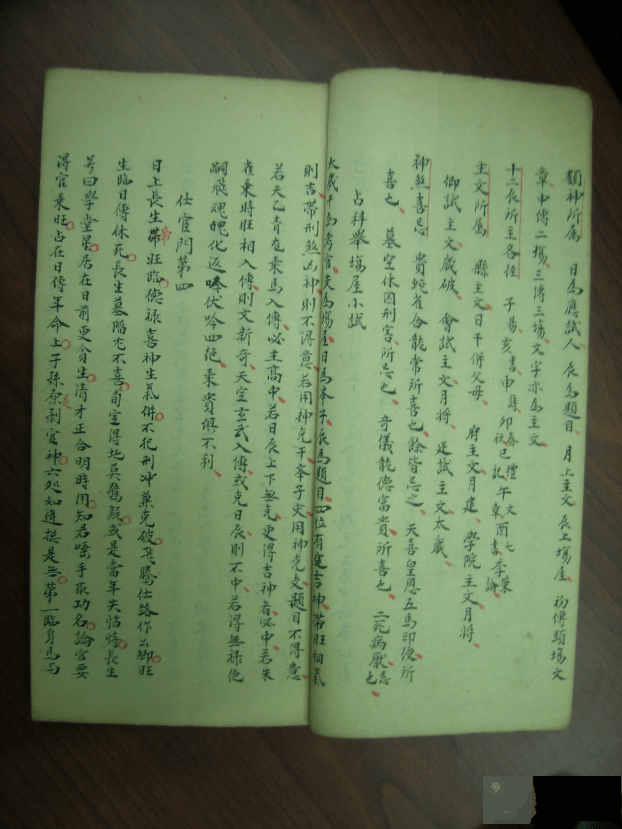 類神所屬 日為應試人 辰為題目 月上主文 辰上場屋 初傳頭場文
章中傳二場三傳三場文字亦為主文
十二辰所主各經 子易亥書申詩卯春秋巳禮記午文章酉七書 策論
主文所屬 縣主文日干併父母 府主文月建 學院主文月將
御試主文歲破 會試主文月將 廷試主文太歲
神煞喜忌 貴蛇雀合龍常所喜也餘皆忌之 天喜皇恩五馬印綬所
喜也 墓空休囚刑害所忌也 奇儀龍德富貴所喜也 二死病厭忌也
占科舉場屋小試
太歲干為考官支為場屋日為李子辰為題目四位有建吉神帶旺相氣
則吉帶刑煞凶神則不得意若用神克干李子突用神克支題目不得意
若天乙青龍乘馬入傳必主高中若日辰上下無克更得吉神者必中若朱
雀乘時旺相入傳則文新奇天空玄武入傳或克日辰則不中若得無祿絕
嗣飛魂魄化返吟伏吟四絕乘貴俱不利
仕宦門第四
日上長生帶旺臨德祿喜神生氣併不犯刑冲萬克破飛騰仕路作公卿旺
生臨日傳休死長生墓陷尤不喜旬空得地莫驚疑或是當年失怙恃長生
号曰學堂星居在日前更貪生清才正合明時用知君唾手取功名論官要
得官乘旺占在日傳年命上子孫原是剥官神六処如逢摠是無第一臨身馬與